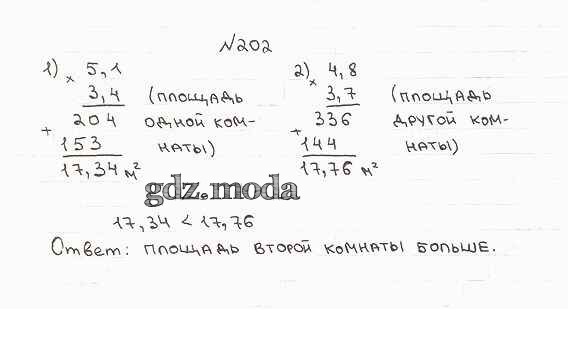 №202
1) × 5,1
3,4 (площадь
204 одной ком-
+
153 наты)
17,34 м²
2) × 4,8
3,7 (площадь
336 другой ком-
+
144 наты)
17,76 м²
gdz.moda
17,34 < 17,76
Ответ: площадь второй комнаты больше.